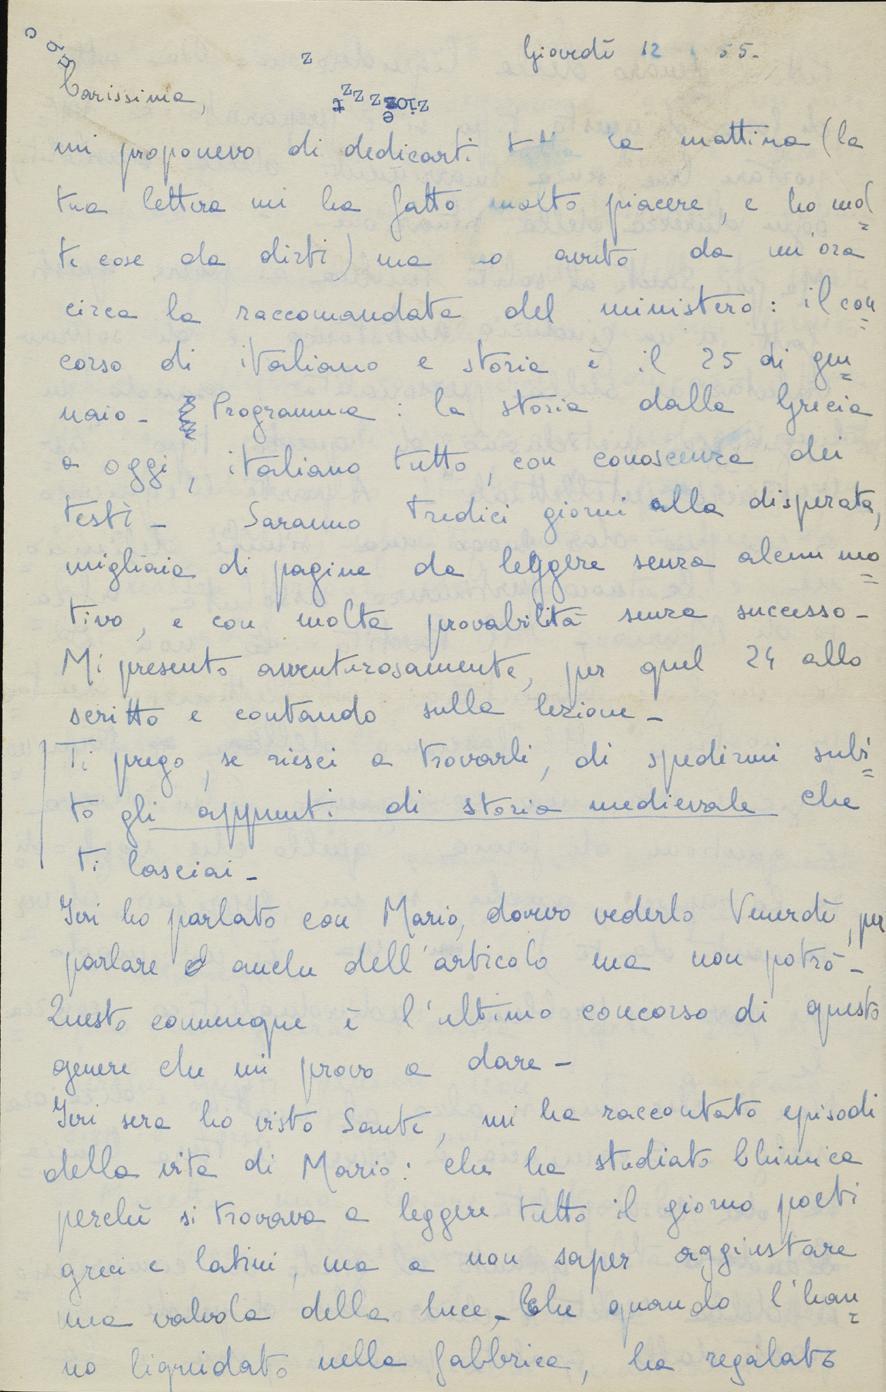 Giovedì 12 1 55.
Carissima,
mi proponevo di dedicarti tt" la mattina (la
tua lettera mi ha fatto molto piacere, e ho mol=
te cose da dirti) ma o avuto da un'ora
circa la raccomandata del ministero: il con=
corso di italiano e storia è il 25 di gen=
naio - Programma: la storia dalla Grecia
a oggi, italiano tutto, con conoscenza dei
testi - Saranno tredici giorni alla disperata,
migliaia di pagine da leggere senza alcun mo=
tivo, e con molta provabilità senza successo -
Mi presento avventurosamente, per quel 24 allo
scritto e contando sulla lezione -
Ti prego, se riesci a trovarli, di spedirmi subi=
to gli appunti di storia medievale che
ti lasciai -
Ieri ho parlato con Mario, dovevo vederlo Venerdì, per
parlare anche dell'articolo ma non potrò -
Questo comunque è l'ultimo concorso di questo
genere che mi provo a dare -
Ieri sera ho visto Sante, mi ha raccontato episodi
della vita di Mario: che ha studiato Chimica
perché si trovava a leggere tutto il giorno poeti
greci e latini, ma a non saper aggiustare
una valvola della luce - Che quando l'han=
no liquidato nella fabbrica, ha regalato